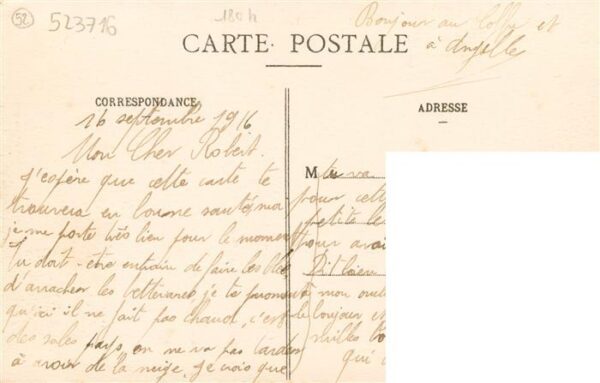 52
523716
180 h
Bonjour au Coffe et
à Angelle
CARTE POSTALE
CORRESPONDANCE
16 septembre 1916
Mon Cher Robert.
J'espère que cette carte te
trouvera en bonne santé, moi
je me porte très bien pour le moment
Tu doit-être entraire de faire les blé
d'arracher les betteraves, je te promet
qu'ici il ne fait pas chaud, c'est
des sales pays on ne va pas tarder
à avoir de la neige, Je crois que
ADRESSE
M tu va
pour cette
petite le
pour avoi
Dit bien
à mon oncle
le bonjour et
milles bo
qui